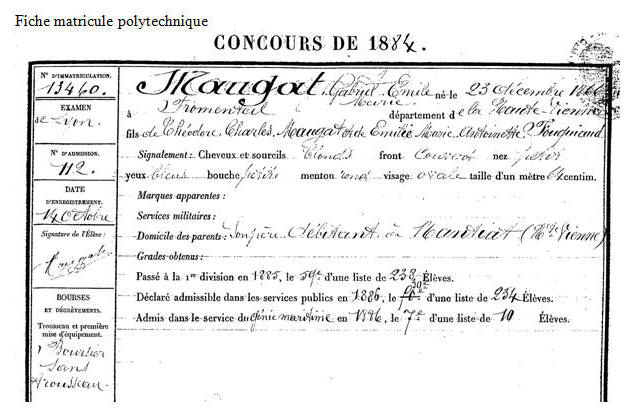 Fiche matricule polytechnique
CONCOURS DE 1884.
N° D'IMMATRICULATION.
13460.
EXAMEN
de Lyon.
N° D'ADMISSION.
112.
DATE
D'ENREGISTREMENT.
14 Octobre
Signature de l'Élève:
BOURSES
ET DÉGRÈVEMENTS.
Trousseau et première
mise d'équipement.
1 Boursier
sans
trousseau.
Maugat. Gabriel Emile né le 23 décembre
Marie
à Fromental département de la Haute Vienne
fils de Théodore Charles Maugat et de Emilie Marie Antoinette
Signalement: Cheveux et sourcils blonds front couvert nez
yeux bleus bouche petite menton rond visage ovale taille d'un mètre 64 centim.
Marques apparentes:
Services militaires:
Domicile des parents: Son père débitant à Nantiat (Hte Vienne)
Grades obtenus:
Passé à la 1re division en 1885, le 59e d'une liste de 238 Élèves.
Déclaré admissible dans les services publics en 1886, le 30e d'une liste de 234 Élèves.
Admis dans le service du génie maritime en 1886, le 7e d'une liste de 10 Élèves.